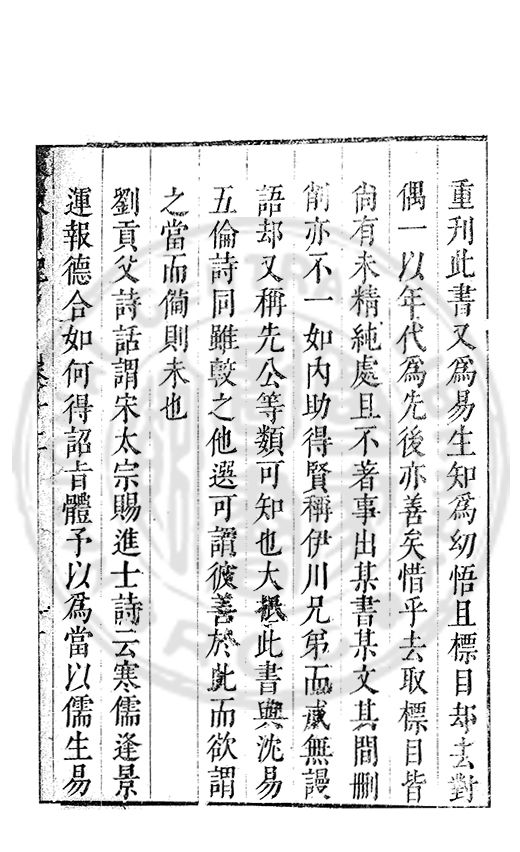 重刊此書又爲易生知爲幼悟且標目却去對
偶一以年代爲先後亦善矣惜乎去取標目皆
尚有未精純處且不著事出某書某文其間刪
削亦不一如內助得賢稱伊川兄弟而或無謾
語却又稱先公等類可知也大抵此書與沈易
五倫詩同雖敦之他選可謂彼善於此而欲謂
之當而備則未也
劉貢父詩話謂宋太宗賜進士詩云寒儒逢景
運報德合如何得詔旨體予以爲當以儒生易